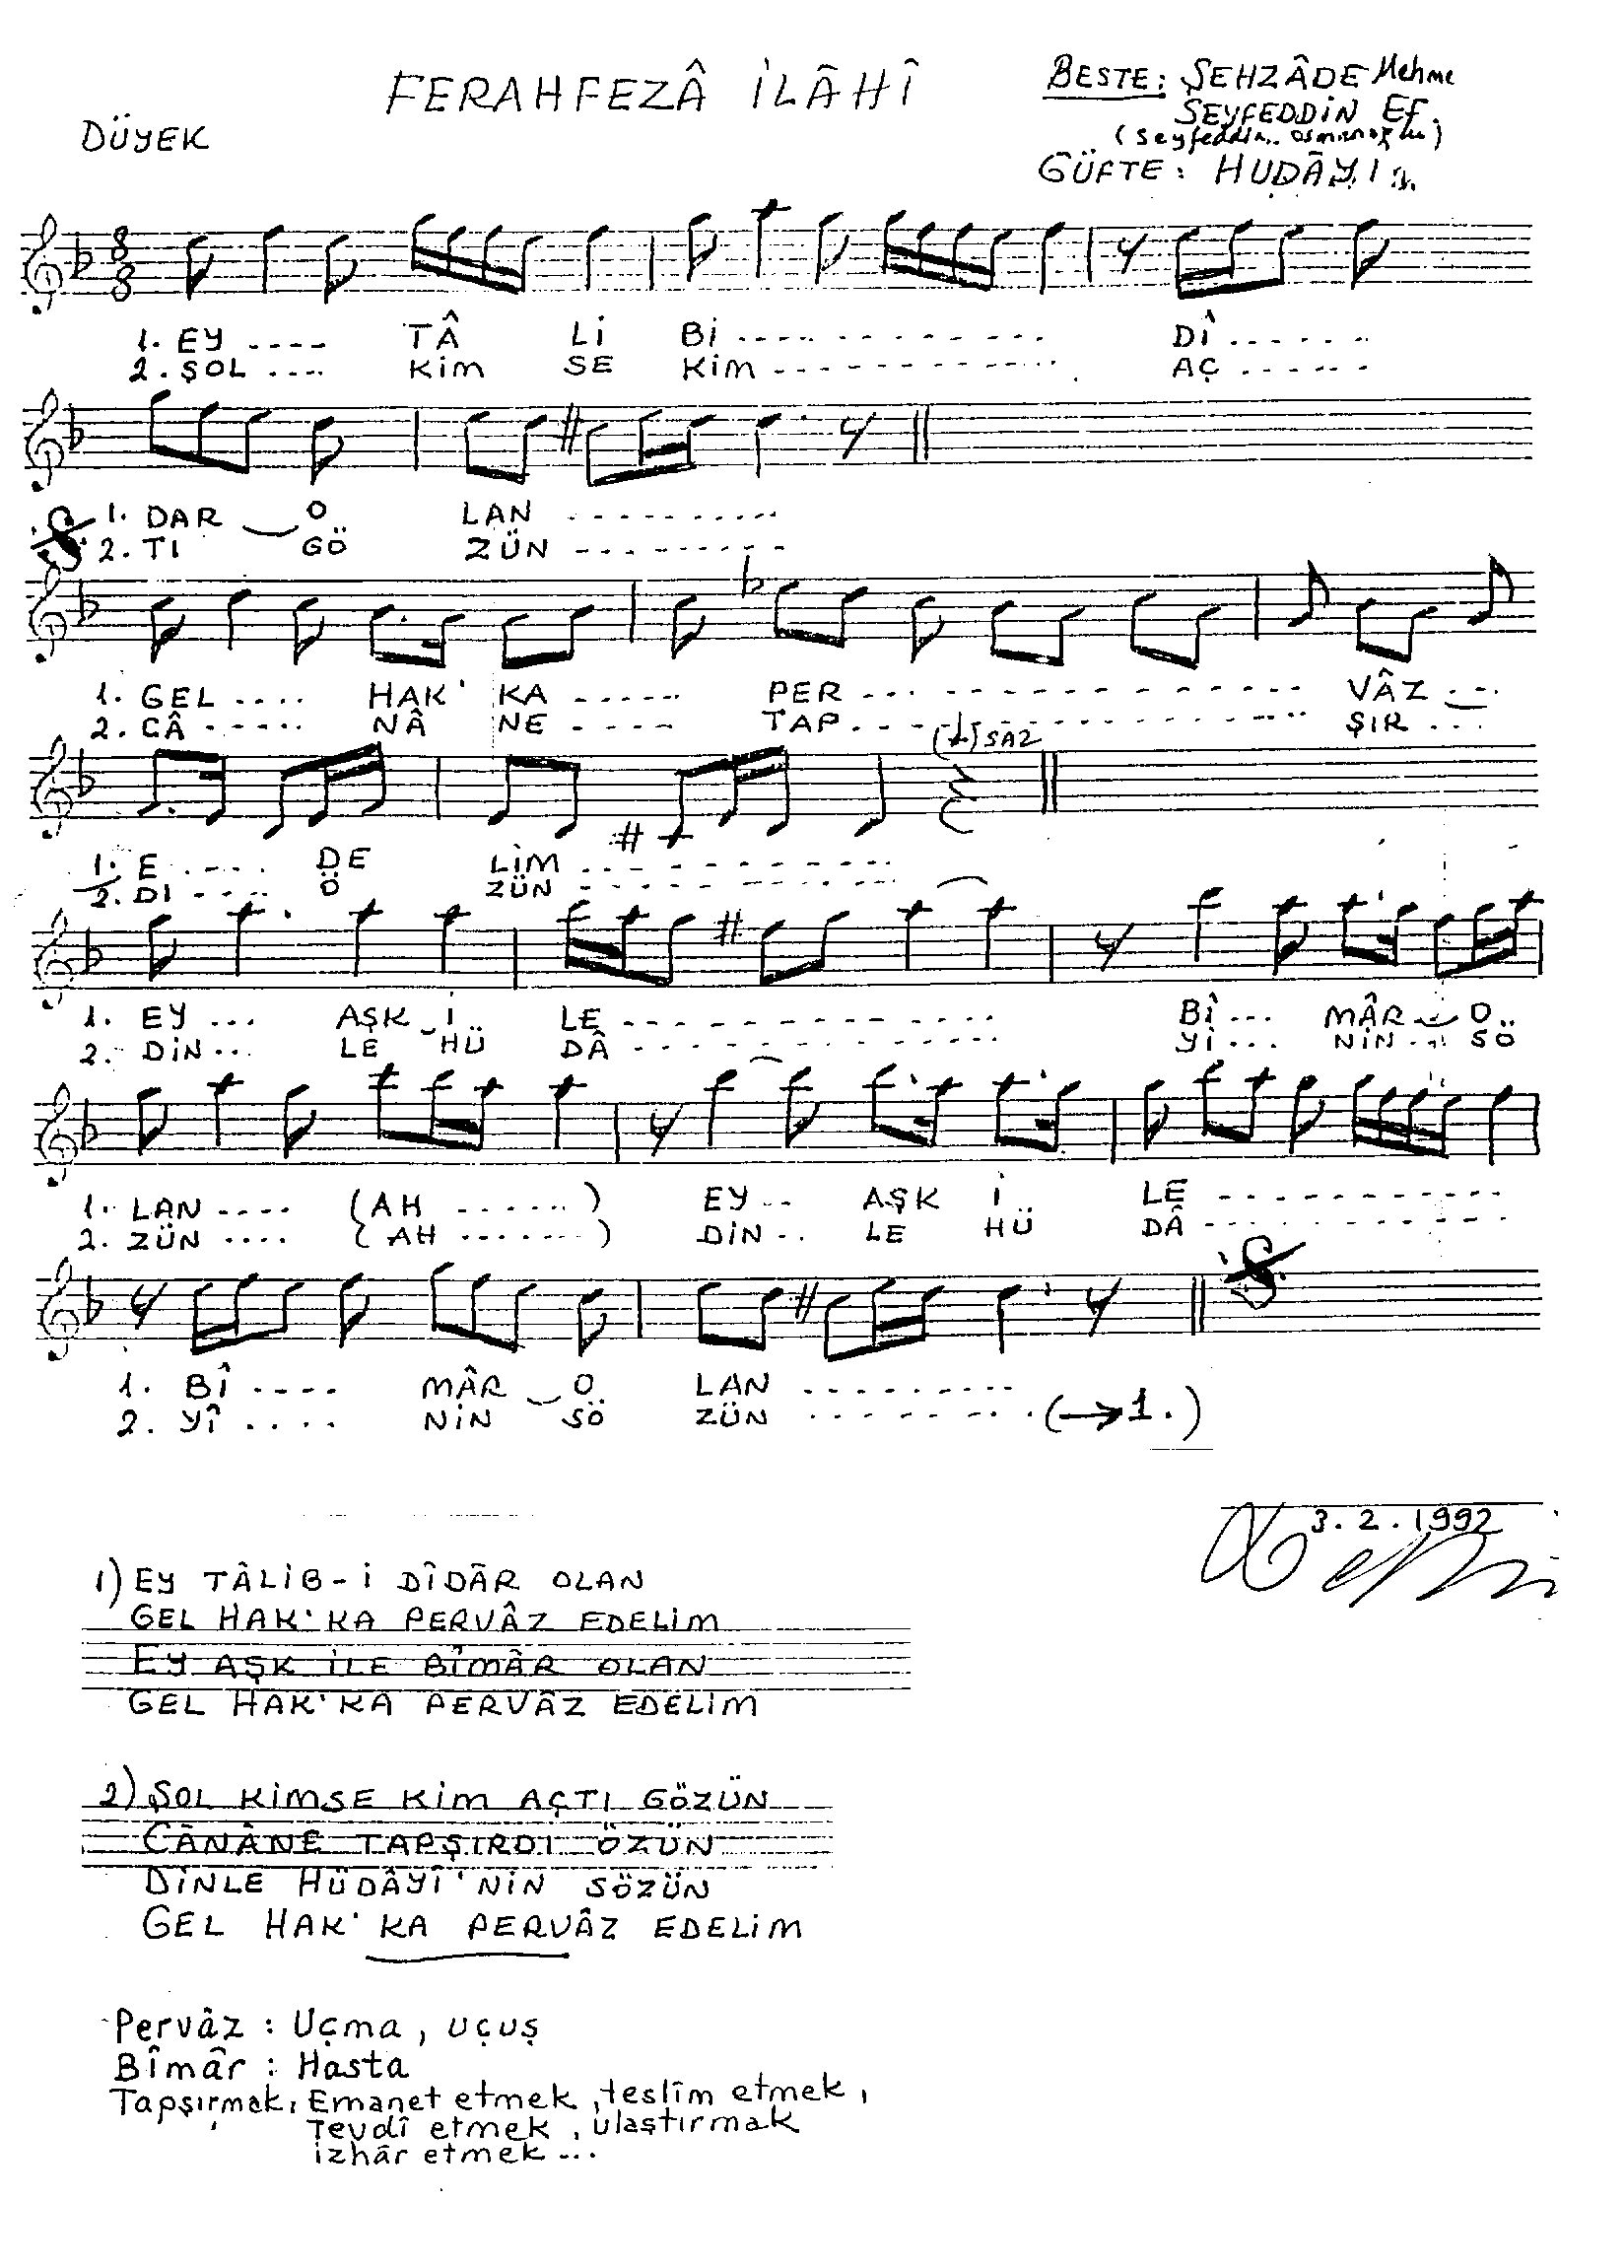 FERAHFEZÂ İLÂHÎ
BESTE: ŞEHZÂDE Mehme
SEYFEDDİN Ef.
(Seyfeddin Osmanoğlu)
DÜYEK
GÜFTE: HUDÂYİ
8
8
1. EY .... TÂ Lİ Bİ ........ DÎ ......
2. ŞOL .... KİM SE KİM ........ AÇ ......
1. DAR O LAN ........
2. TI GÖ ZÜN ........
1. GEL .... HAK' KA ..... PER ........ VÂZ ...
2. CÂ ..... NÂ NE ..... TAP ........ ŞIR ...
SAZ
1. E ..... DE LİM ........
2. DI .... Ö ZÜN ........
1. EY ... AŞK İ LE ........ BÎ ... MÂR O ..
2. DİN ... LE HÜ DÂ ........ YÎ ... NİN ... SÖ
1. LAN .... (AH ......) EY .. AŞK İ LE ........
2. ZÜN .... (AH ......) DİN .. LE HÜ DÂ ........
1. BÎ .... MÂR O LAN ........
2. YÎ .... NİN SÖ ZÜN ........ (→1.)
3.2.1992
1) EY TÂLİB-İ DÎDÂR OLAN
GEL HAK'KA PERVÂZ EDELİM
EY AŞK İLE BÎMÂR OLAN
GEL HAK'KA PERVÂZ EDELİM
2) ŞOL KİMSE KİM AÇTI GÖZÜN
CÂNÂNE TAPŞIRDI ÖZÜN
DİNLE HÜDÂYÎ'NİN SÖZÜN
GEL HAK'KA PERVÂZ EDELİM
Pervâz : Uçma, uçuş
Bîmâr : Hasta
Tapşırmak: Emanet etmek, teslîm etmek,
Tevdî etmek, ulaştırmak
izhâr etmek ...